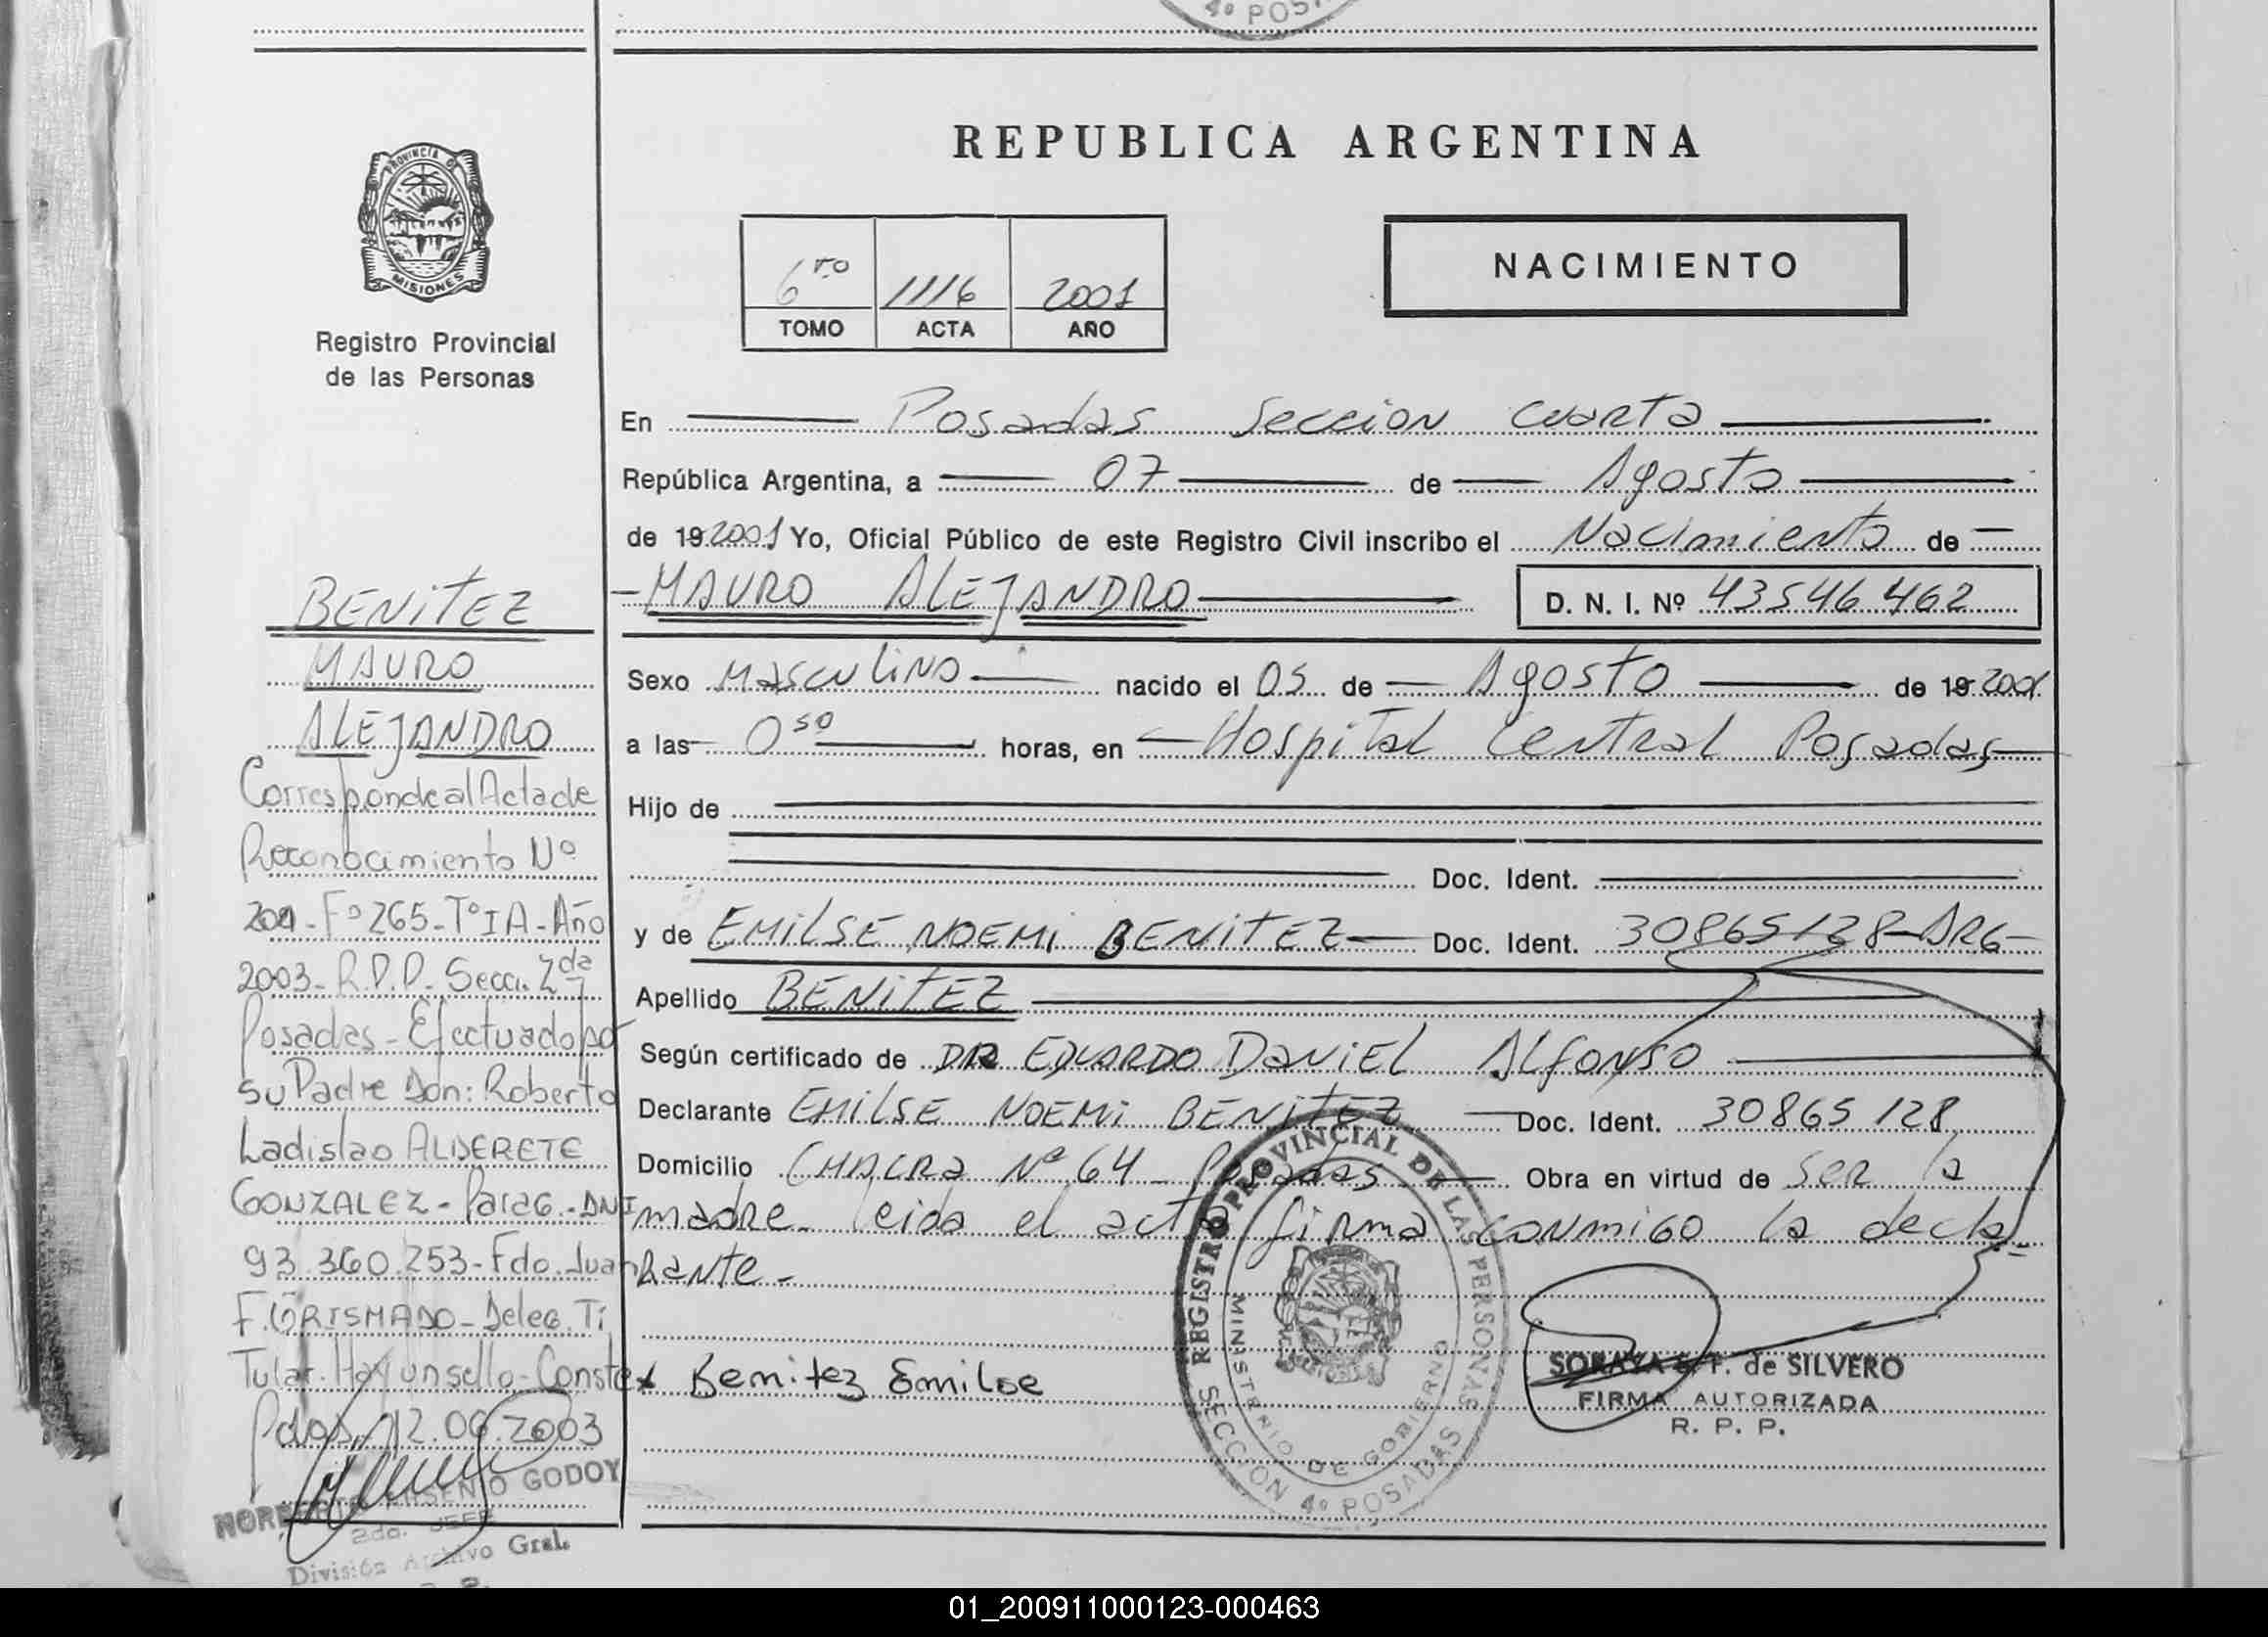 4º POS
PROVINCIA DE
MISIONES
Registro Provincial
de las Personas
REPUBLICA ARGENTINA
NACIMIENTO
6to 1116 2001
TOMO ACTA AÑO
En Posadas Seccion Cuarta
República Argentina, a 07 de Agosto
de 19 2001 Yo, Oficial Público de este Registro Civil inscribo el Nacimiento de
MAURO ALEJANDRO D. N. I. Nº 43546462
Sexo Masculino nacido el 05 de Agosto de 19 2001
a las 0 50 horas, en Hospital Central Posadas
Hijo de
Doc. Ident.
y de EMILSE NOEMI BENITEZ Doc. Ident. 30865128-ARG-
Apellido BENITEZ
Según certificado de DR EDUARDO DANIEL ALFONSO
Declarante EMILSE NOEMI BENITEZ Doc. Ident. 30865128
Domicilio CHACRA Nº 64 Posadas Obra en virtud de ser la
madre. leida el acta firma conmigo la decla-
rante-
Benitez Emilse
REGISTRO PROVINCIAL DE LAS PERSONAS
MINISTERIO DE GOBIERNO
SECCION 4º POSADAS
SORAYA F. de SILVERO
FIRMA AUTORIZADA
R. P. P.
BENITEZ
MAURO
ALEJANDRO
Corresponde al Acta de
Reconocimiento Nº
Fº 265-TºIA-Año
2003-R.P.P-Secc. 2da
Posadas-Efectuado por
su Padre Don: Roberto
Ladislao ALDERETE
GONZALEZ-Parag.-DNI
93.360.253-Fdo. Juan
F. GRISMADO-Deleg. Ti
Tular. Hay un sello-Conste
Pdas, 12.06.2003
ARSENIO GODOY
2do. JEFE
División Archivo Gral.
01_200911000123-000463